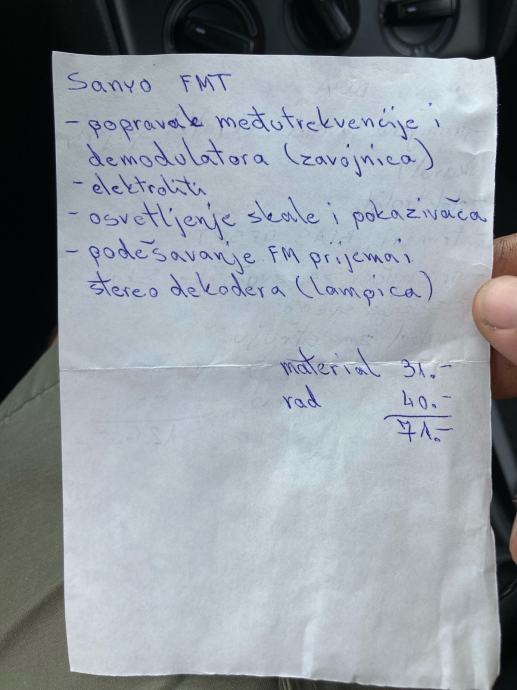 Sanyo FMT
- popravak međufrekvencije i
demodulatora (zavojnica)
- elektroliti
- osvetljenje skale i pokazivača
- podešavanje FM prijema i
stereo dekodera (lampica)
material 31.-
rad 40.-
71.-